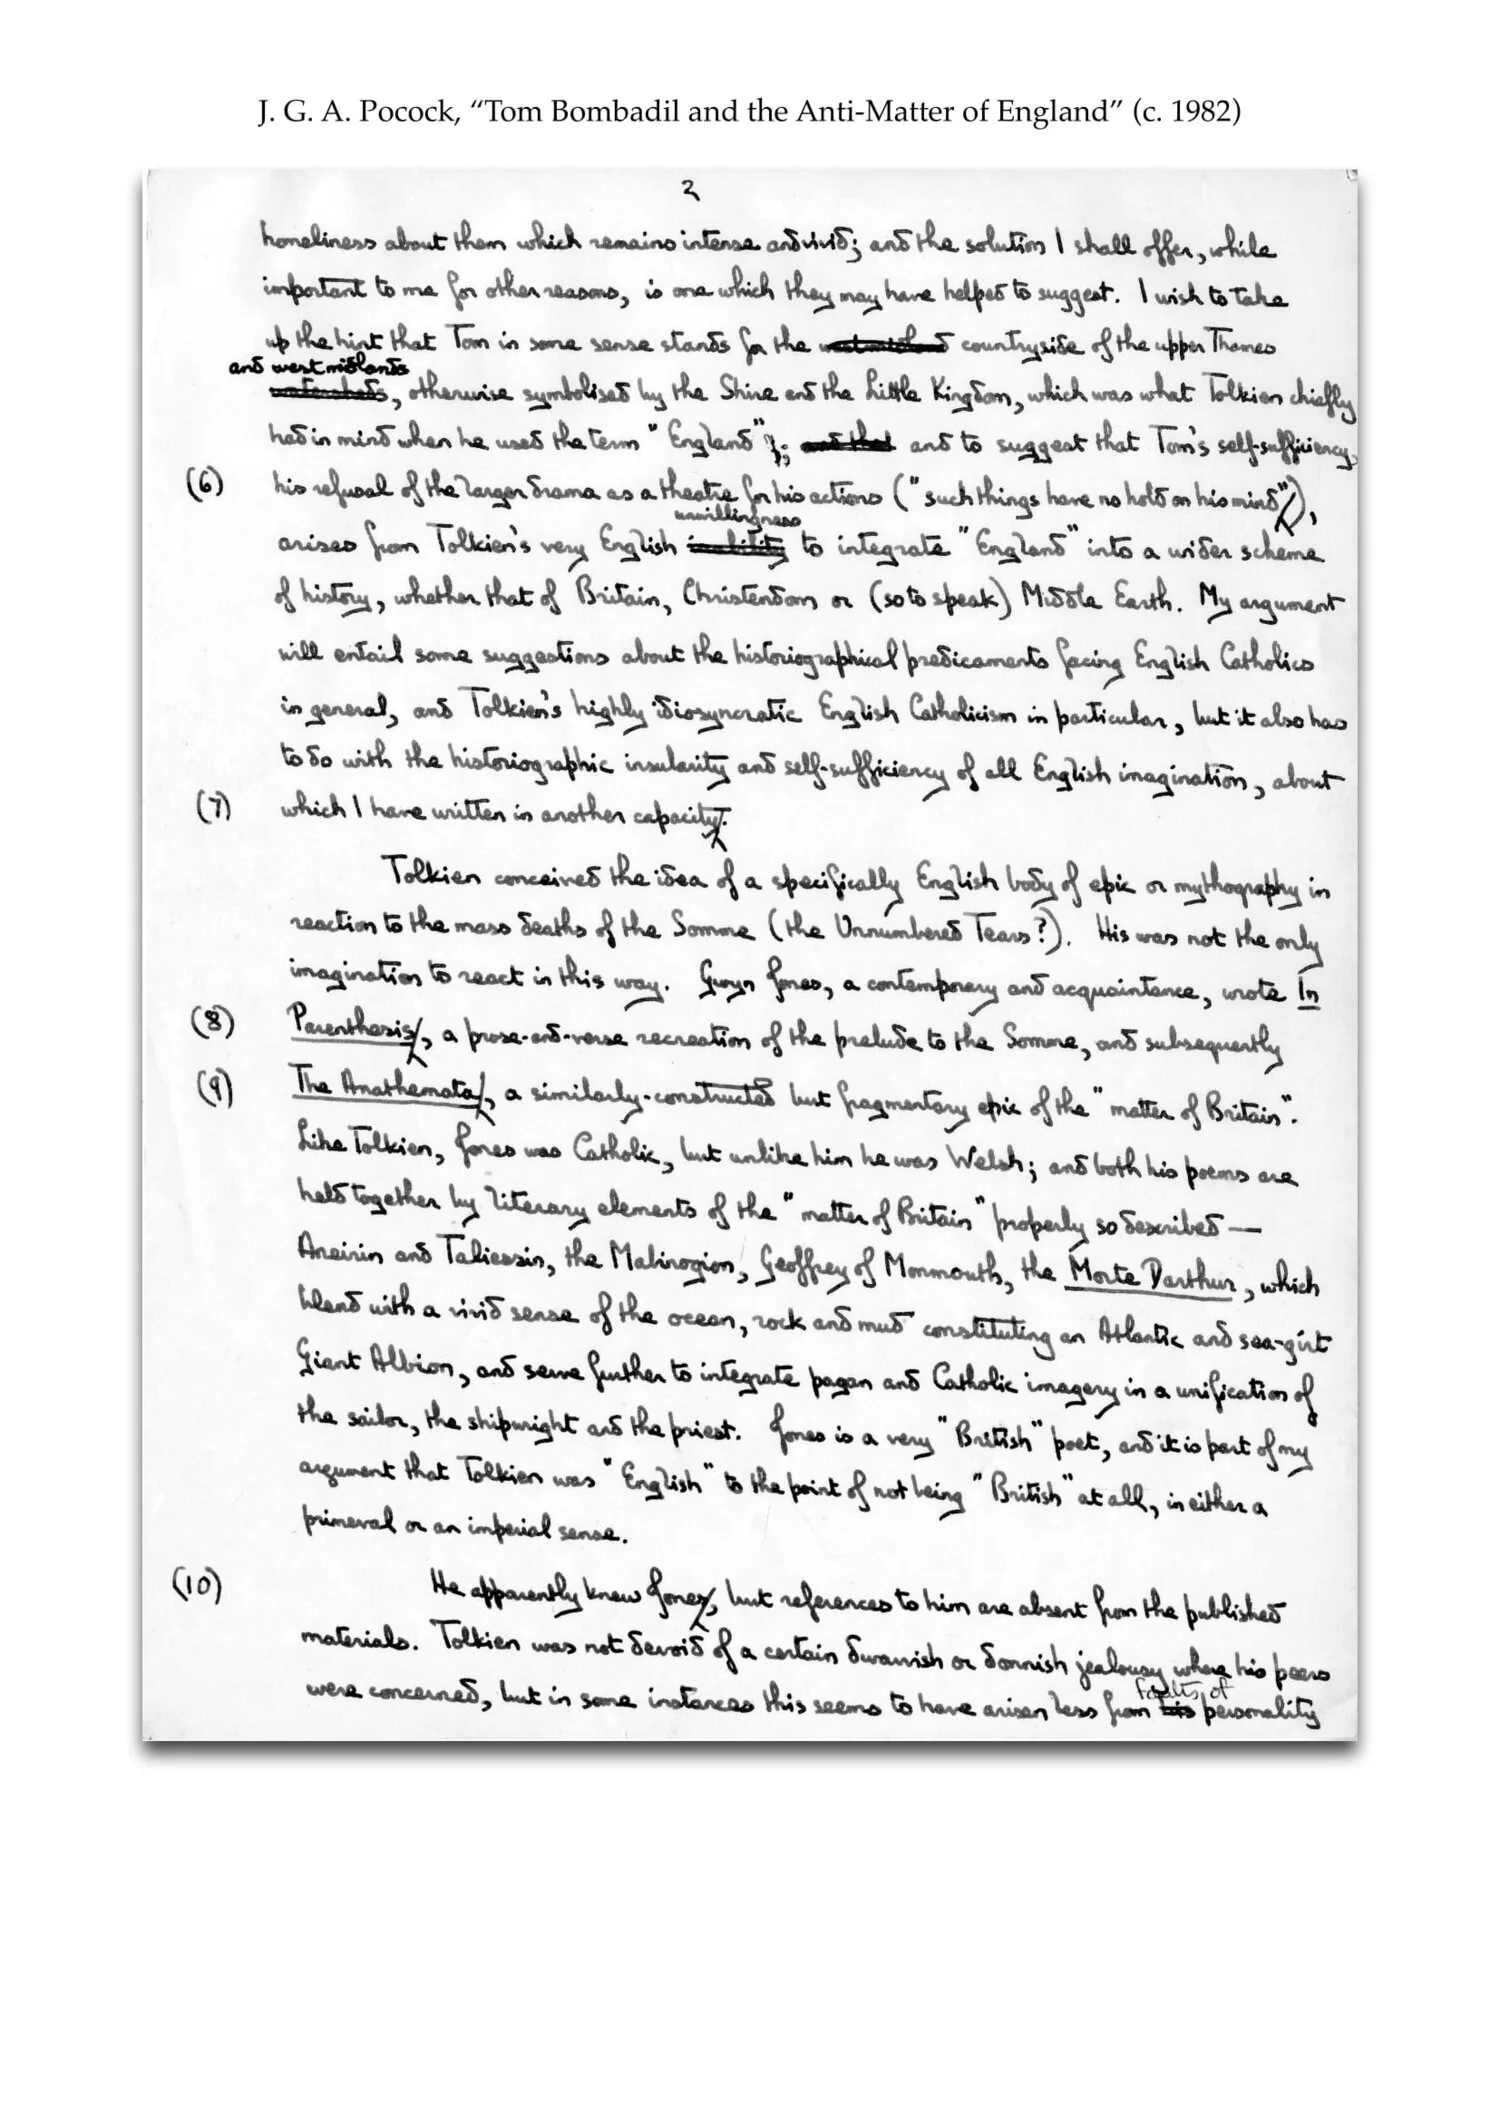 J. G. A. Pocock, “Tom Bombadil and the Anti-Matter of England” (c. 1982)
2
homeliness about them which remains intense and vivid; and the solution I shall offer, while
important to me for other reasons, is one which they may have helped to suggest. I wish to take
up the hint that Tom in some sense stands for the west midland countryside of the upper Thames
and west midlands
watersheds, otherwise symbolised by the Shire and the Little Kingdom, which was what Tolkien chiefly
had in mind when he used the term "England"; and that and to suggest that Tom's self-sufficiency,
(6) his refusal of the larger drama as a theatre for his actions ("such things have no hold on his mind"),
unwillingness
arises from Tolkien's very English inability to integrate "England" into a wider scheme
of history, whether that of Britain, Christendom or (so to speak) Middle Earth. My argument
will entail some suggestions about the historiographical predicaments facing English Catholics
in general, and Tolkien's highly idiosyncratic English Catholicism in particular, but it also has
to do with the historiographic insularity and self-sufficiency of all English imagination, about
(7) which I have written in another capacity.
Tolkien conceived the idea of a specifically English body of epic or mythography in
reaction to the mass deaths of the Somme (the Unnumbered Tears?). His was not the only
imagination to react in this way. Gwyn Jones, a contemporary and acquaintance, wrote In
(8) Parenthesis, a prose-and-verse recreation of the prelude to the Somme, and subsequently
(9) The Anathemata, a similarly-constructed but fragmentary epic of the "matter of Britain".
Like Tolkien, Jones was Catholic, but unlike him he was Welsh; and both his poems are
held together by literary elements of the "matter of Britain" properly so described —
Aneirin and Taliessin, the Mabinogion, Geoffrey of Monmouth, the Morte Darthur, which
blend with a vivid sense of the ocean, rock and mud constituting an Atlantic and sea-girt
Giant Albion, and serve further to integrate pagan and Catholic imagery in a unification of
the sailor, the shipwright and the priest. Jones is a very "British" poet, and it is part of my
argument that Tolkien was "English" to the point of not being "British" at all, in either a
primeval or an imperial sense.
(10) He apparently knew Jones, but references to him are absent from the published
materials. Tolkien was not devoid of a certain dwarvish or donnish jealousy where his peers
faults of
were concerned, but in some instances this seems to have arisen less from his personality